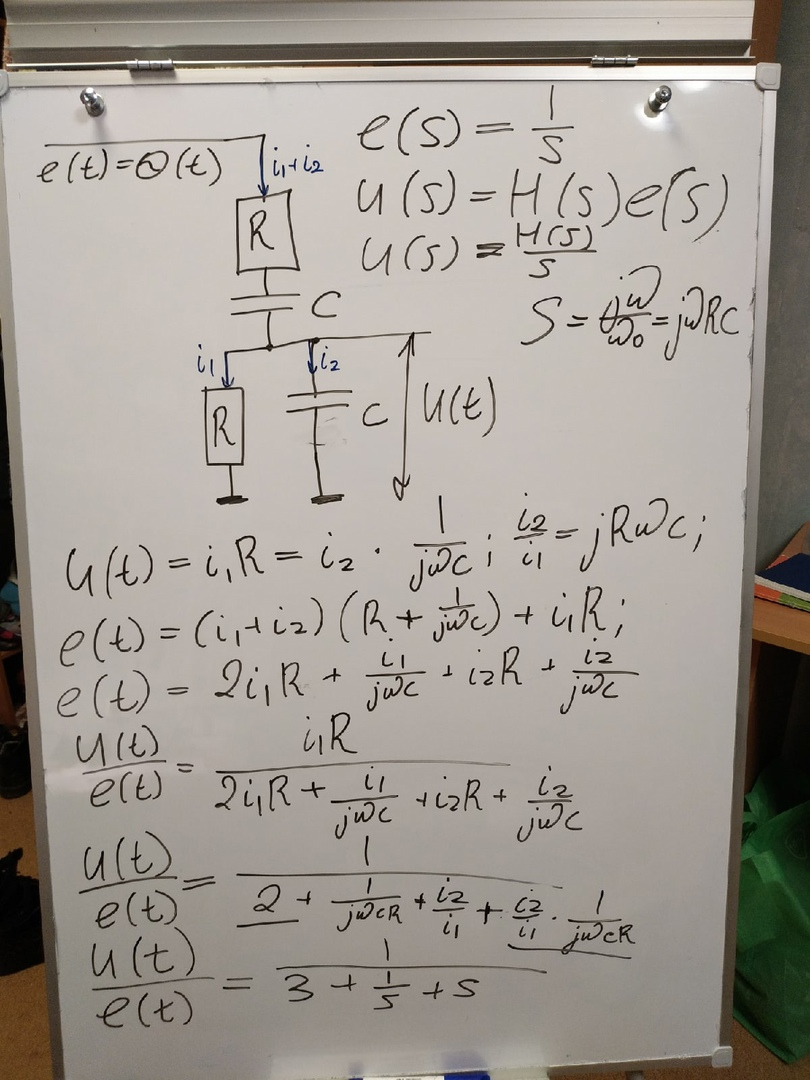 e(t)=Θ(t)
i₁+i₂
R
C
i₁
i₂
R
C
u(t)
e(s) = 1/s
u(s) = H(s)e(s)
u(s) = H(s)/s
S = jω/ω₀ = jωRC
u(t) = i₁R = i₂ · 1/jωC ; i₂/i₁ = jRωC ;
e(t) = (i₁+i₂)(R + 1/jωC) + i₁R ;
e(t) = 2i₁R + i₁/jωC + i₂R + i₂/jωC
u(t)/e(t) = i₁R/(2i₁R + i₁/jωC + i₂R + i₂/jωC)
u(t)/e(t) = 1/(2 + 1/jωCR + i₂/i₁ + i₂/i₁ · 1/jωCR)
u(t)/e(t) = 1/(3 + 1/s + s)